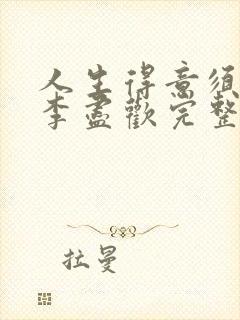 人生得意须
李盡歡完整
拉曼